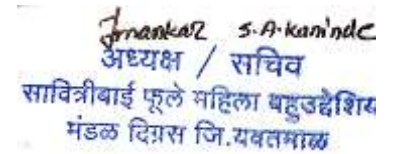 S.A. Kaninde
अध्यक्ष / सचिव
सावित्रीबाई फूले महिला बहुउद्देशिय
मंडळ दिग्रस जि.यवतमाळ